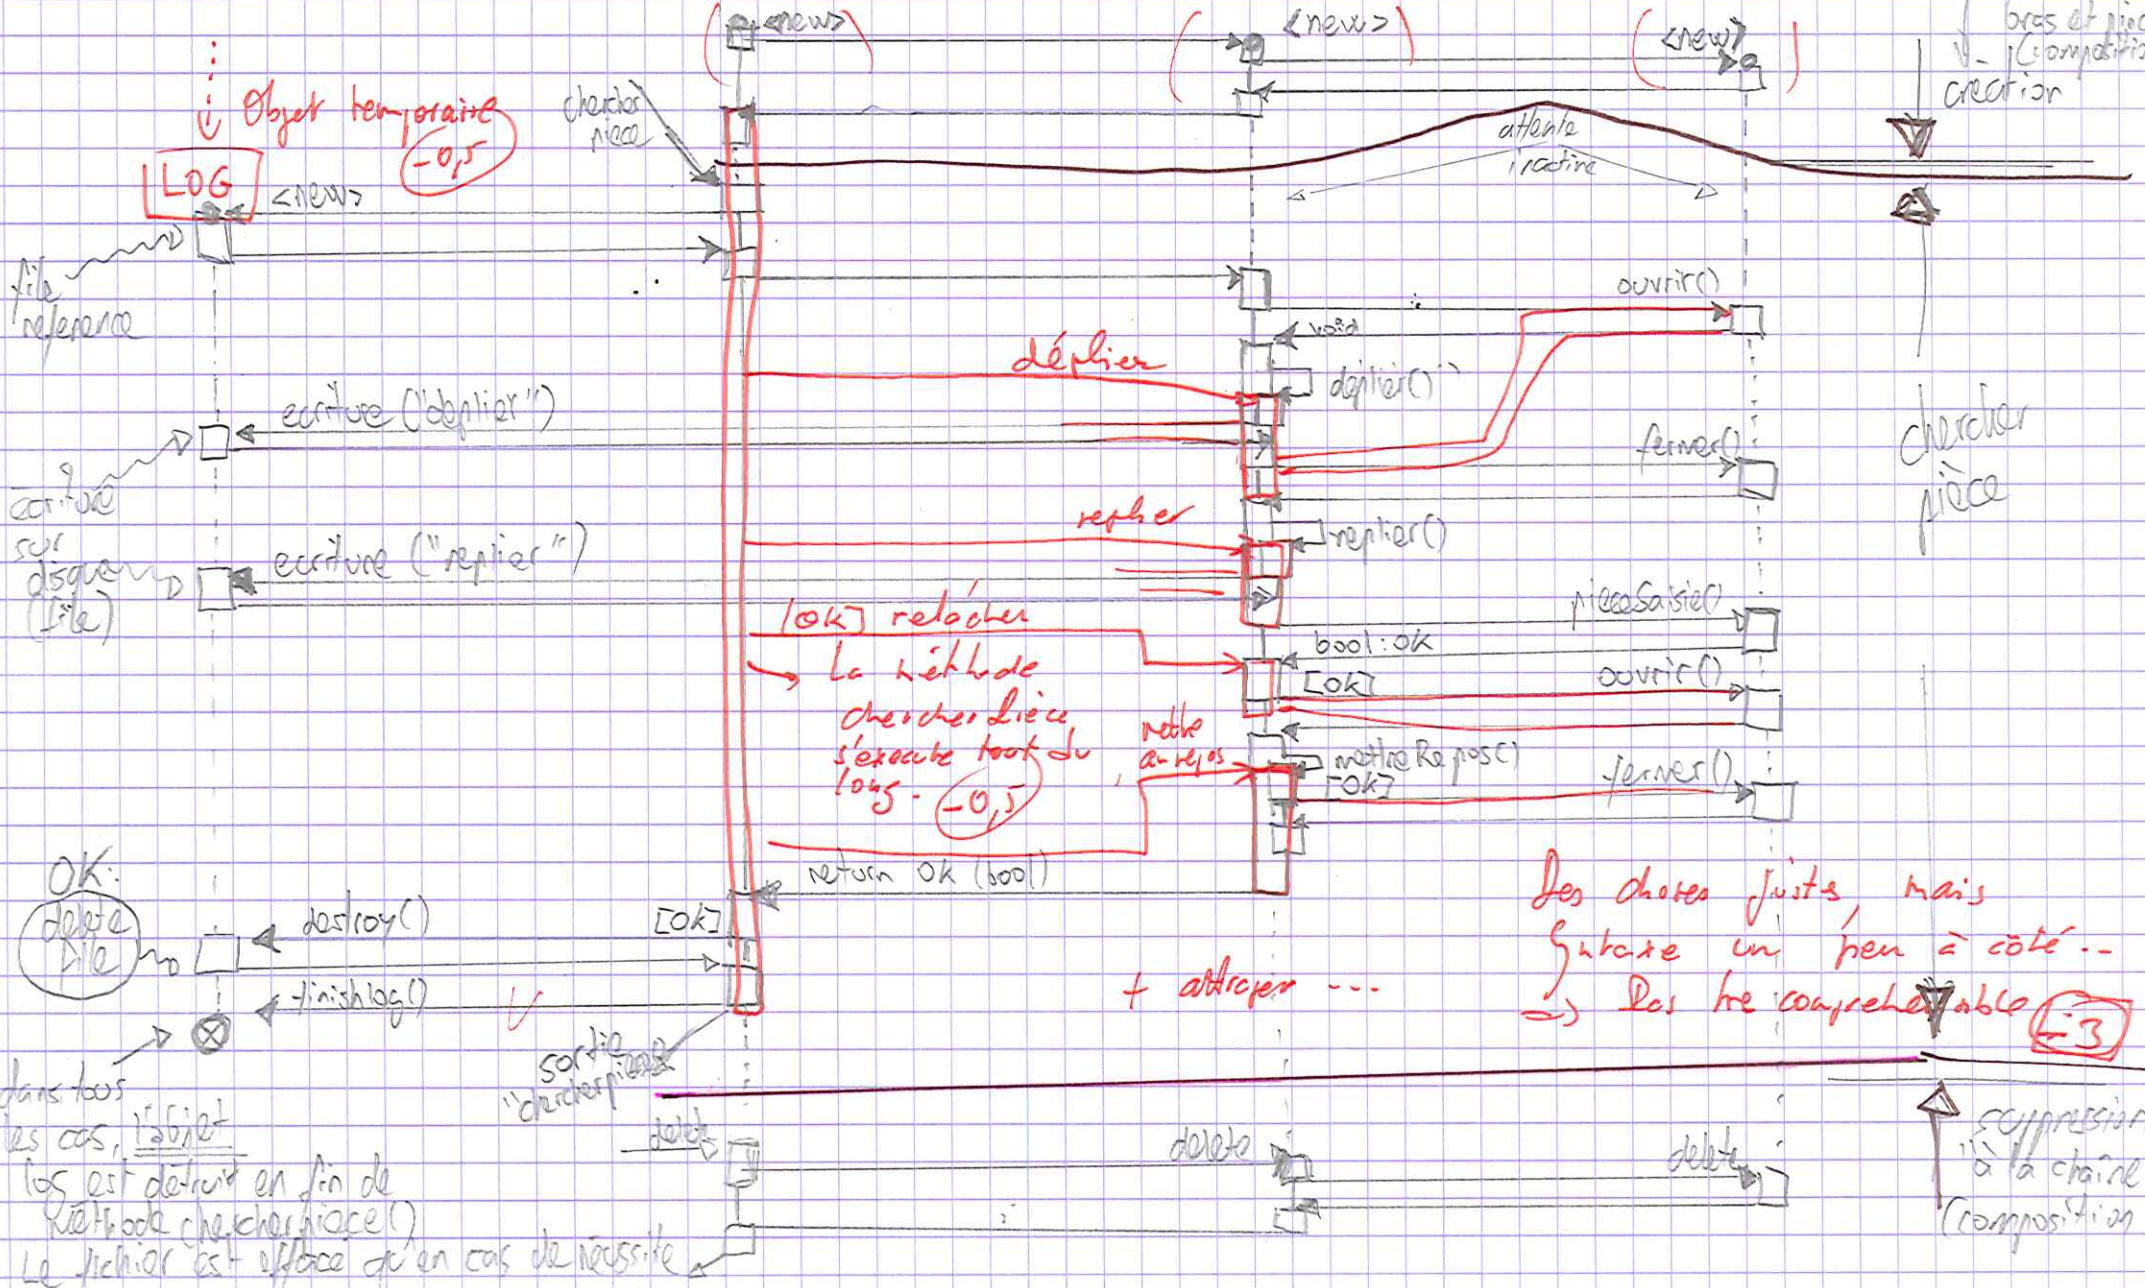 <new>
<new>
<new>
bras et
(compositio
création
Objet temporaire
-0,5
chercher
pièce
attente
inactive
LOG
<new>
file
reference
ouvrir()
void
déplier
déplier()
ecriture ("deplier")
fermer()
chercher
pièce
ecriture
sur
disque
(file)
replier
replier()
ecriture ("replier")
pieceSaisie()
[OK] relâcher
bool:OK
La méthode
[OK]
ouvrir()
chercher Pièce
s'éxecute tout du
long.
-0,5
mettre
au repos
mettreRepos()
[OK]
fermer()
return OK (bool)
OK:
delete
file
destroy()
[OK]
Des choses justes, mais
Syntaxe un peu à côté...
+ attraper ...
=> Pas tre comprehensible
-3
finishlog()
sortie
"chercherpiece
dans tous
les cas, l'objet
log est détruit en fin de
méthode chercherpiece()
Le fichier est effacé qu'en cas de réussite
delete
delete
delete
suppression
"à la chaîne
(composition